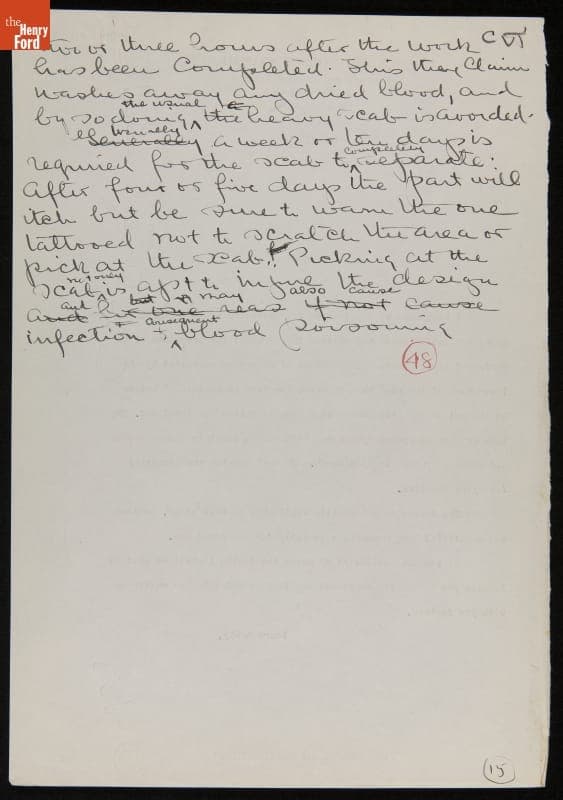 the
Henry
Ford
two or three hours after the work
has been completed. This they claim
washes away any dried blood, and
by so doing, the usual the heavy scab is avoided.
Generally Usually a week or ten days is
required for the scab to completely separate.
After four or five days the part will
itch but be sure to warn the one
tattooed not to scratch the area or
pick at the scab! Picking at the
scab not only is apt to injure the design
and but may also cause
infection & blood poisoning
48
15